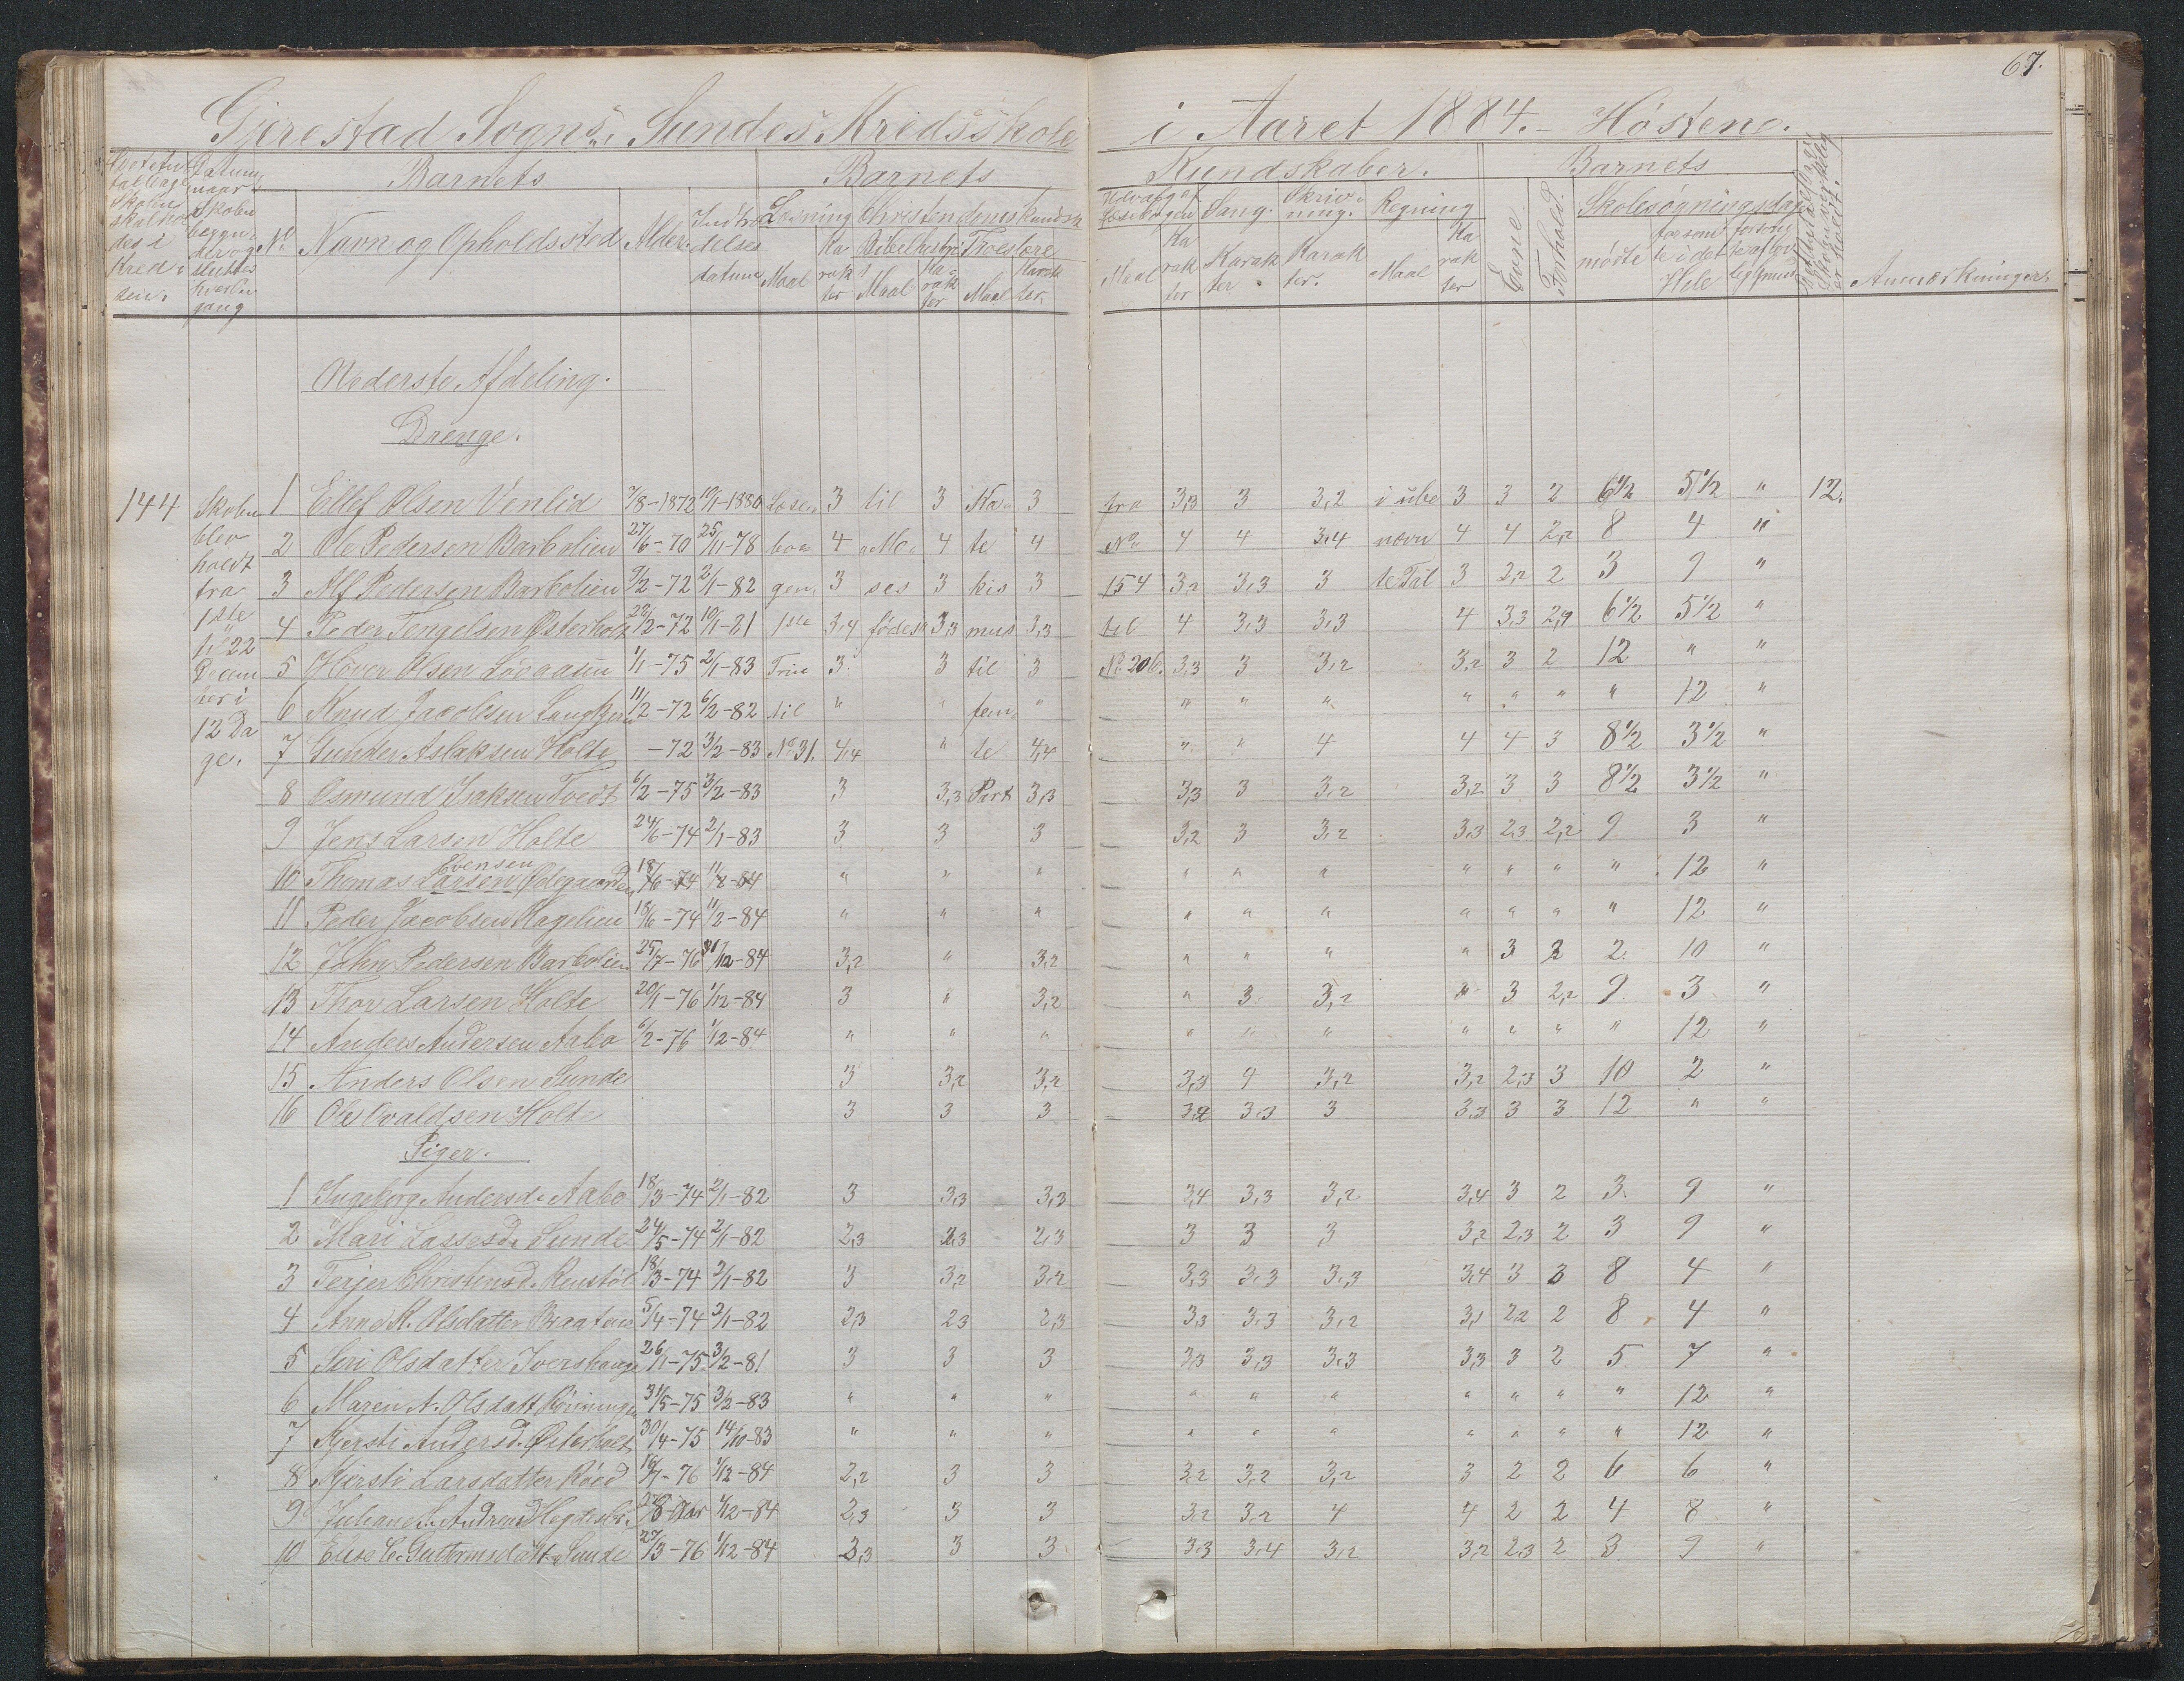 67.
Gjerestad Sogns, Sundes Kredsskole i Aaret 1884. - Høsten.
Barnets Barnets Kundskaber. Barnets
Navn og Opholdssted Alder. Indtrædelses datum Læsning Christendomskundsk
Maal Karakter Bibelhistorie Maal Karakter Troeslære Maal Karakter
Udvalg af Læsebogen Sang. Skrivning. Regning Evne. Forhold. Skolesøgningsdage
Maal Karakter Karakter Karakter. Maal Karakter mødte Hele Anmærkninger.
Nederste Afdeling.
Drenge.
144 Skolen blev holdt fra 1ste til 22 December i 12 Dage.
1 Ellef Olsen Venlid 7/8-1872 10/1-1880 Læse- 3 til 3 Ka- 3 fra 3,3 3 3,2 i ube 3 3 2 6 1/2 5 1/2 " 12.
2 Ole Pedersen Barbolien 27/6-70 25/11-78 boe 4 Mo- 4 te 4 No 4 4 3,4 nævn 4 4 2,2 8 4 "
3 Alf Pedersen Barbolien 9/2-72 2/1-82 gen, 3 ses 3 kis 3 154 3,2 3,3 3 te Tal 3 2,2 2 3 9 "
4 Peder Tengelsen Østerholt 22/2-72 10/1-81 1ste 3,4 fødes 3,3 mus 3,3 til 4 3,3 3,3 4 3,3 2,2 6 1/2 5 1/2 "
5 Høver Olsen Løvaasen 1/1-75 2/1-83 Trin 3 3 til 3 No 206. 3,3 3 3,2 3,2 3 2 12 " "
6 Knud Jacobsen 11/2-72 6/2-82 til " " fem- " " " " " " " " 12 "
7 Gunder Aslaksen Holte -72 3/2-83 No 31. 4,4 " te 4,4 " " 4 4 4 3 8 1/2 3 1/2 "
8 Osmund Isaksen Tvedt 6/2-75 3/2-83 3 3,3 Part 3,3 3,3 3 3,2 3,2 3 3 8 1/2 3 1/2 "
9 Jens Larsen Holte 24/6-74 2/1-83 3 3 3 3,2 3 3,2 3,3 2,3 2,2 9 3 "
Evensen
10 Thomas Larsen Ødegaarden 18/6-74 11/2-84 " " " " " " " " " " 12 "
11 Peder Jacobsen Kagelien 18/6-74 11/2-84 " " " " " " " " " " 12 "
12 John Pedersen Barbolien 25/7-76 1/12-84 3,2 " 3,2 " " " " 3 2 2 10 "
13 Thov Larsen Holte 20/1-76 1/12-84 3 " 3,2 " 3 3,2 " 3 2,2 9 3 "
14 Anders Andersen Aabo 6/2-76 1/12-84 " " " " " " " " " " 12 "
15 Anders Olsen Sunde 3 3,2 3,2 3,3 4 3,2 3,2 2,3 3 10 2 "
16 Ole Ovaldsen Holte 3 3 3 3,2 3,3 3 3,3 3 3 12 " "
Piger.
1 Ingeborg Andersd. Aabo 18/3-74 2/1-82 3 3,3 3,3 3,4 3,3 3,2 3,4 3 2 3 9 "
2 Mari Lassesd. Sunde 24/5-74 2/1-82 2,3 2,3 2,3 3 3 3 3,2 2,3 2 3 9 "
3 Terjer Christensd. Renstøl 18/3-74 2/1-82 3 3,2 3,2 3,3 3,3 3,3 3,4 3 3 8 4 "
4 Anne K. Olsdatter Braaten 5/4-74 2/1-82 2,3 2,3 2,3 3,3 3,3 3,2 3,1 2,2 2 8 4 "
5 Siri Olsdatter Ivershaug 26/1-75 3/2-81 3 3 3 3,3 3,3 3,3 3,3 3 2 5 7 "
6 Maren A. Olsdatt Rønningen 31/5-75 3/2-83 " " " " " " " " " " 12 "
7 Kjersti Andersd. Østerholt 30/4-75 14/10-83 " " " " " " " " " " 12 "
8 Kjersti Larsdatter Røed 16/7-76 1/12-84 2,2 3 3 3,2 3,2 3,2 3 2 2 6 6 "
9 Juliane A. Andreasd 8 Aar 1/12-84 2,3 3 3 3,2 3,2 4 4 2 2 4 8 "
10 Elise C. Guttormsdatt. Sunde 27/3-76 1/12-84 3,3 3 3 3,3 3,4 3,2 3,2 2,3 2 3 9 "